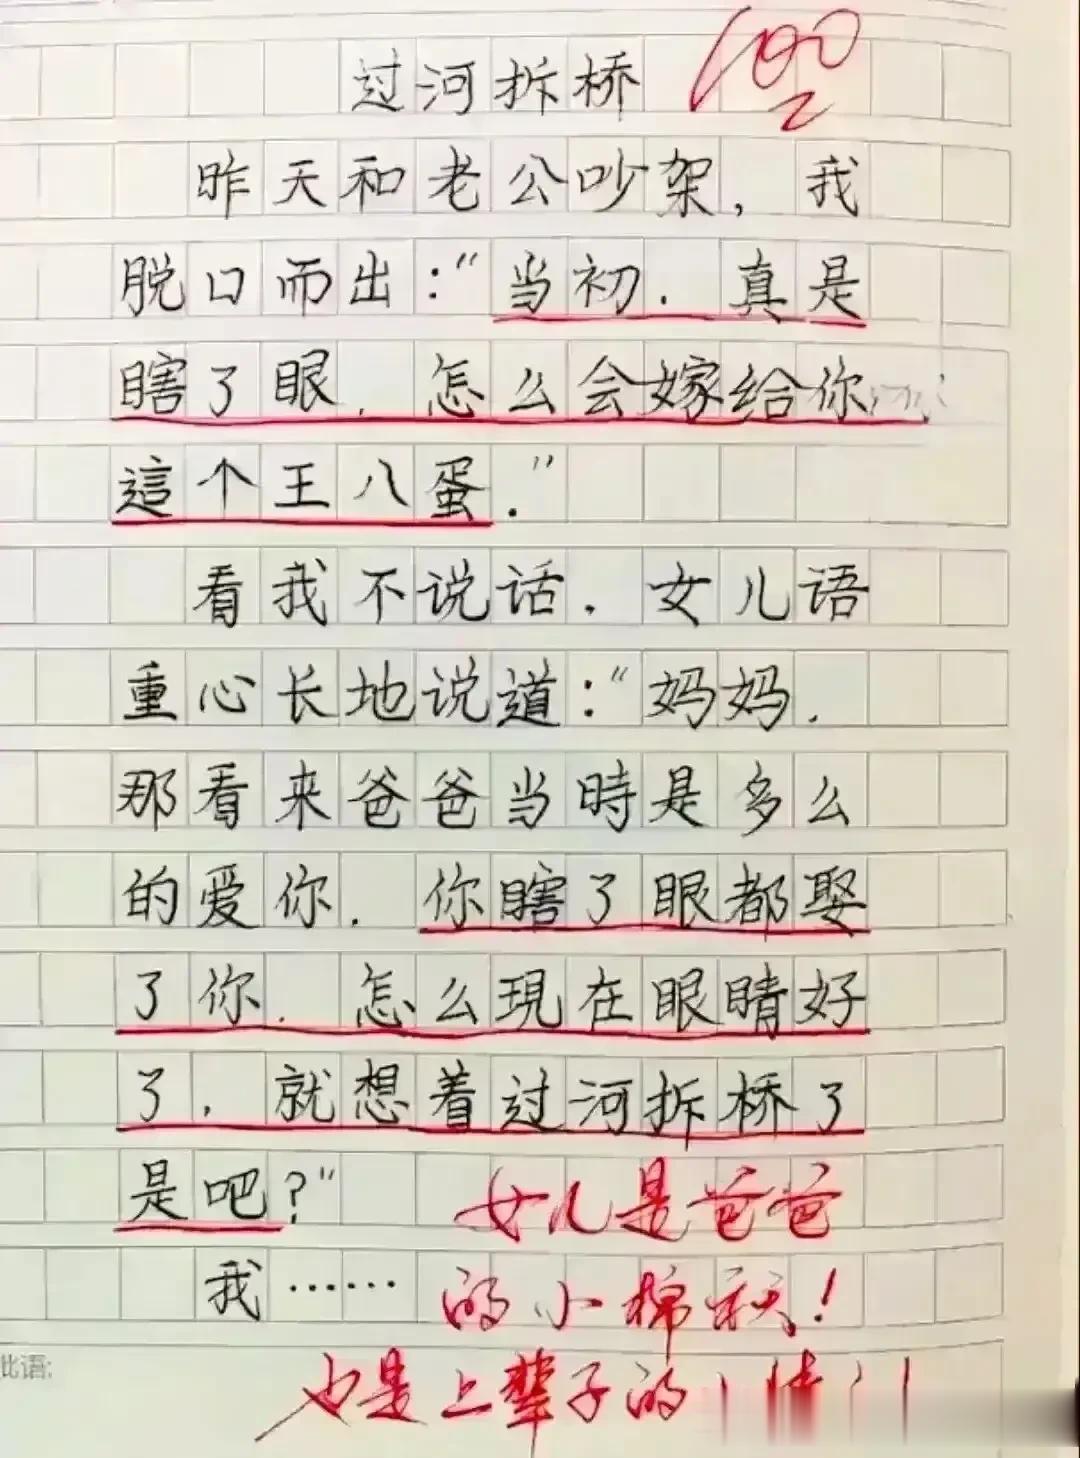 过河拆桥 100
昨天和老公吵架，我
脱口而出：“当初．真是
瞎了眼．怎么会嫁给你
這个王八蛋．”
看我不说话．女儿语
重心长地说道：“妈妈．
那看来爸爸当時是多么
的爱你．你瞎了眼都娶
了你．怎么現在眼睛好
了，就想着过河拆桥了
是吧？”
女儿是爸爸
我……
的小棉袄！
批语:
也是上辈子的